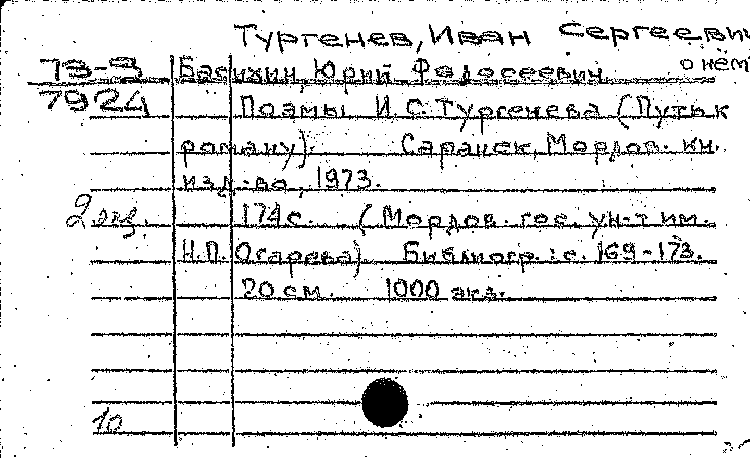 Тургенев, Иван Сергеевич
о нём
73-3
7924
Басихин, Юрий Федосеевич
Поэмы И.С. Тургенева (Путь к
роману). Саранск, Мордов. кн.
изд-во, 1973.
2 экз.
174 с. (Мордов. гос. ун-т им.
Н.П. Огарева) Библиогр.: с. 169-173.
20 см. 1000 экз.
10